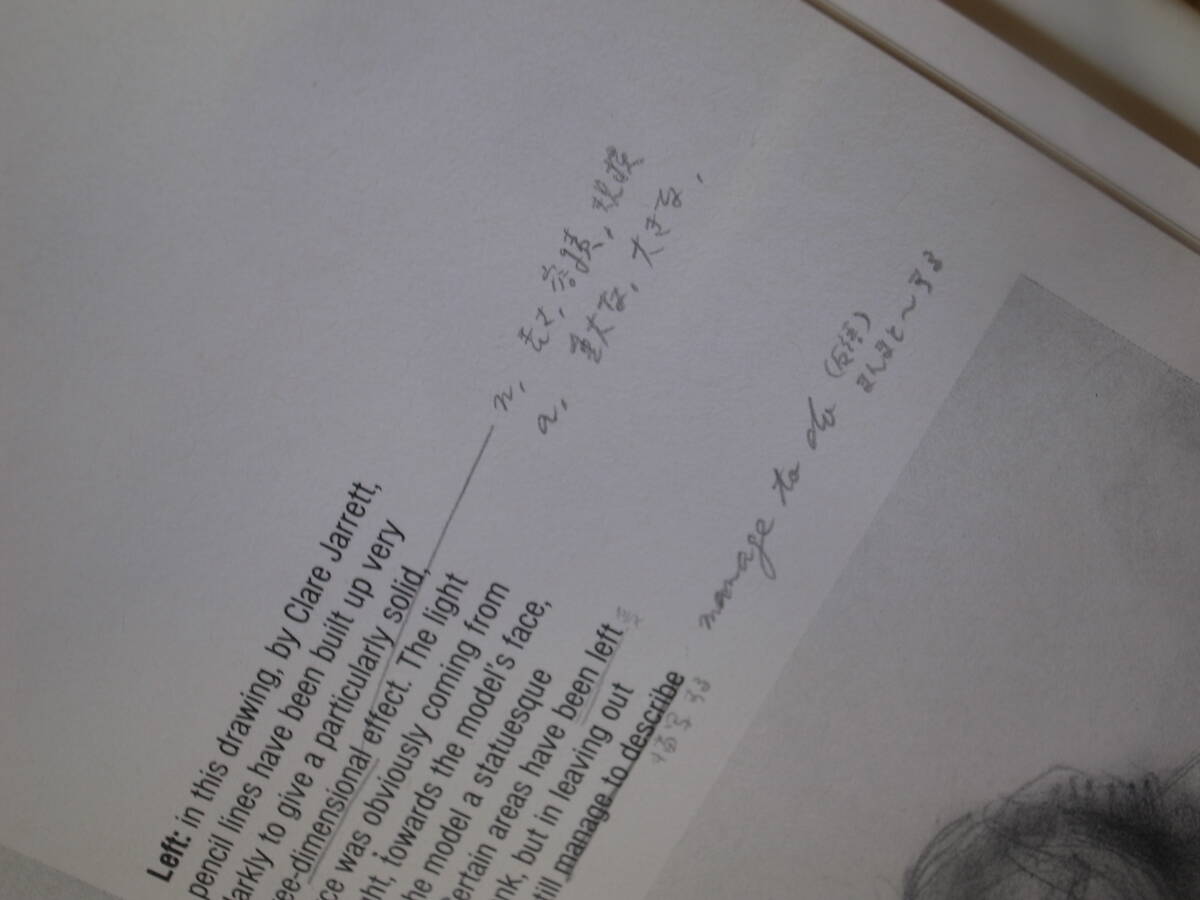 Left: in this drawing, by Clare Jarrett,
pencil lines have been built up very
darkly to give a particularly solid,
ee-dimensional effect. The light
ce was obviously coming from
ht, towards the model's face,
he model a statuesque
ertain areas have been left
nk, but in leaving out
till manage to describe
n. 大さ, 容積, 規模
a. 重大な, 大きな,
manage to do (反語)
まんまと〜する
描写する